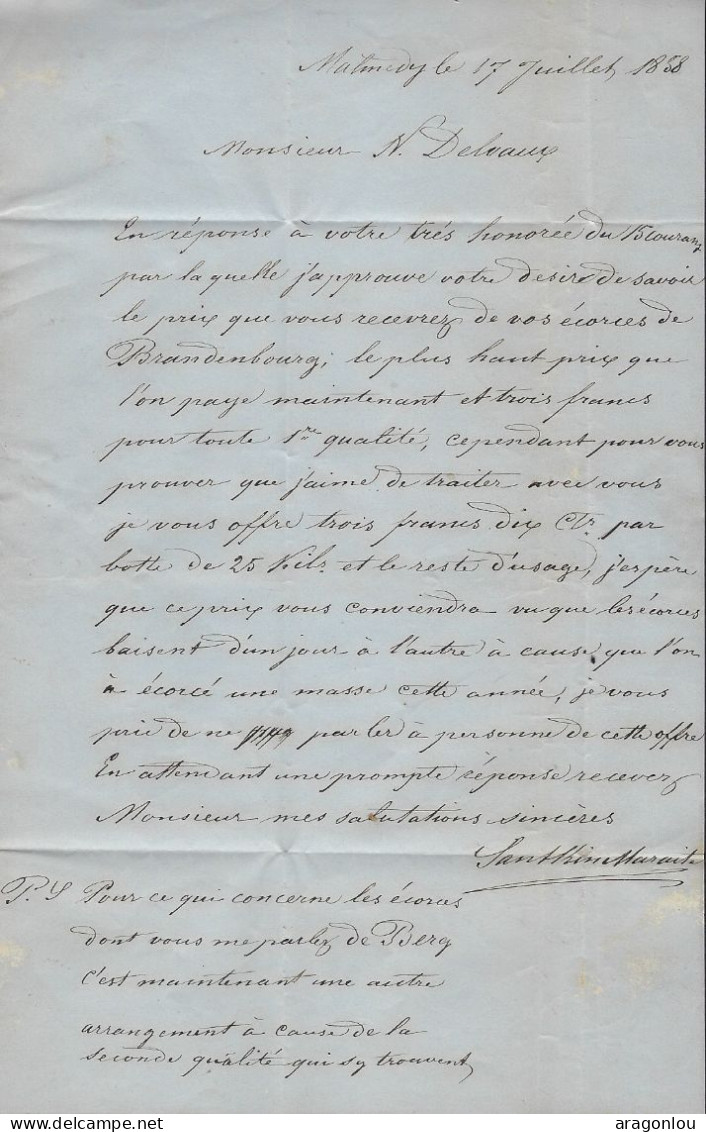 Malmedy le 17 Juillet 1858
Monsieur N. Delvaux
En réponse à votre trés honorée du 15 courant
par laquelle j'approuve votre desire de savoir
le prix que vous recevrez de vos écorces de
Brandenbourg; le plus haut prix que
l'on paye maintenant et trois francs
pour toute 1re qualité, cependant pour vous
prouver que j'aime de traiter avec vous
je vous offre trois francs dix Cts. par
botte de 25 Kils. et le reste d'usage, j'espère
que ce prix vous conviendra vu que les écorces
baisent d'un jour à l'autre à cause que l'on
à écorcé une masse cette année, je vous
prie de ne parler à personne de cette offre
En attendant une prompte réponse recevez
Monsieur mes salutations sincères
Santkin Maraite
P.S Pour ce qui concerne les écorces
dont vous me parlez de Berg
c'est maintenant une autre
arrangement à cause de la
seconde qualité qui sy trouvent
aragonlou